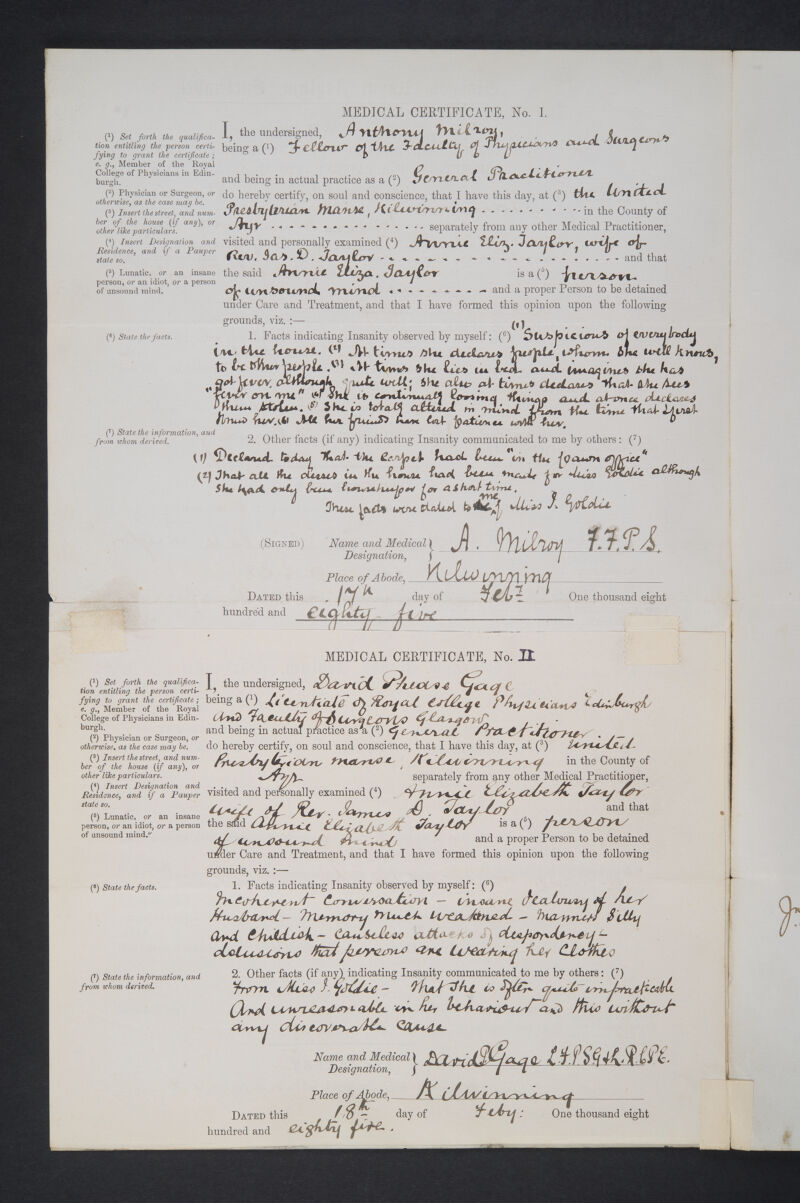 MEDICAL CERTIFICATE, No. 1.
(¹) Set forth the qualifica-
tion entitling the person certi-
fying to grant the certificate;
e. g., Member of the Royal
College of Physicians in Edin-
burgh.
(²) Physician or Surgeon, or
otherwise, as the case may be.
(³) Insert the street, and num-
ber of the house (if any), or
other like particulars.
(⁴) Insert Designation and
Residence, and if a Pauper
state so.
(⁵) Lunatic, or an insane
person, or an idiot, or a person
of unsound mind.
I, the undersigned, Anthony Milroy,
being a (¹) Fellow of the Faculty of Physicians and Surgeons
and being in actual practice as a (²) General Practitioner
do hereby certify, on soul and conscience, that I have this day, at (³) the United
Presbyterian Manse, Kilwinning - - - - - - - - - - in the County of
Ayr - - - - - - - - - - - - - - - separately from any other Medical Practitioner,
visited and personally examined (⁴) Annie Eliz. Taylor, wife of
Rev. Jas. D. Taylor - - - - - - - - - - - - - - - - and that
the said Annie Eliza. Taylor is a (⁵) person
of unsound mind - - - - - - - - and a proper Person to be detained
under Care and Treatment, and that I have formed this opinion upon the following
grounds, viz. :—
(⁶) State the facts.
1. Facts indicating Insanity observed by myself: (⁶) (1) Suspicious of everybody
in the house. (2) At times she declares people, whom she well knows,
to be other people. (3) At times she lies in bed and imagines she has
got fever, although quite well; she also at times declares that she sees
"fever on me" (4) She is continually loosing things and at once declares
them stolen. (5) She is totally altered in mind from the time that I first
knew her. (6) All her friends have lost patience with her.
(⁷) State the information, and
from whom derived.
2. Other facts (if any) indicating Insanity communicated to me by others: (⁷)
(1) Declared today that the Carpet had been "in the pawn office"
(2) That all the dresses in the house had been made for Miss Goldie although
she had only been housekeeper for a short time.
These facts were stated to me by Miss J. Goldie
(SIGNED) Name and Medical Designation, A. Milroy F.F.P.S.
Place of Abode, Kilwinning
DATED this 17th day of Feby One thousand eight
hundred and eighty five
MEDICAL CERTIFICATE, No. II
(¹) Set forth the qualifica-
tion entitling the person certi-
fying to grant the certificate;
e. g., Member of the Royal
College of Physicians in Edin-
burgh.
(²) Physician or Surgeon, or
otherwise, as the case may be.
(³) Insert the street, and num-
ber of the house (if any), or
other like particulars.
(⁴) Insert Designation and
Residence, and if a Pauper
state so.
(⁵) Lunatic, or an insane
person, or an idiot, or a person
of unsound mind."
I, the undersigned, David Phease Gage
being a (¹) Licentiate of Royal College Physicians Edinburgh
And Faculty of Surgeons Glasgow
and being in actual practice as a (²) General Practitioner
do hereby certify, on soul and conscience, that I have this day, at (³) United
Presbyterian manse, Kilwinning in the County of
Ayr separately from any other Medical Practitioner,
visited and personally examined (⁴) Annie Elizabeth Taylor
wife of Rev. James D. Taylor and that
the said Annie Elizabeth Taylor is a (⁵) person
of unsound mind and a proper Person to be detained
under Care and Treatment, and that I have formed this opinion upon the following
grounds, viz. :—
(⁶) State the facts.
1. Facts indicating Insanity observed by myself: (⁶)
Incoherent Conversation - insane Jealousy of her
Husband - Memory much weakened - Manners Silly
And Childish - Causeless attacks of despondency -
delusions that persons are wearing her Clothes
(⁷) State the information, and
from whom derived.
2. Other facts (if any) indicating Insanity communicated to me by others: (⁷)
From Miss J. Goldie - that she is often quite impracticable
And unreasonable in her behaviour and this without
any discoverable cause
Name and Medical Designation, David P Gage L.F.P.S.G & L.R.C.P.E.
Place of Abode, Kilwinning
DATED this 18th day of Feby: One thousand eight
hundred and eighty five.